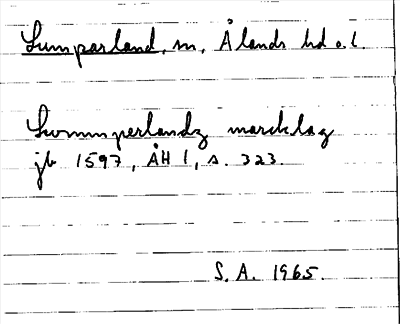 Lumparland, sn, Ålands hd o. l.
Lwmmperlandz marcklag
jb 1597, ÅH 1, s. 323.
S. A. 1965.